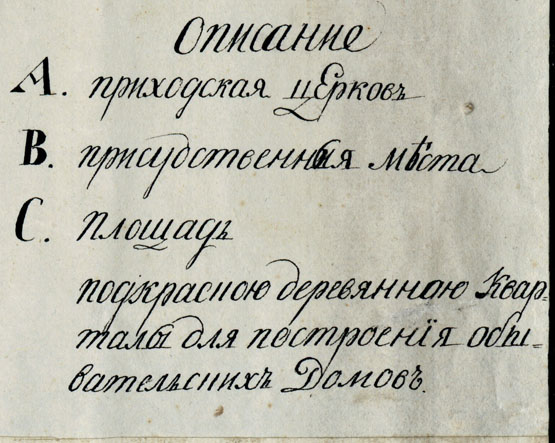 Описание
A. приходская церковъ
B. присудственныя мѣста
C. Площадь
подкрасною деревянною Квар-
талы для построенїя обы-
вательскихъ Домовъ.